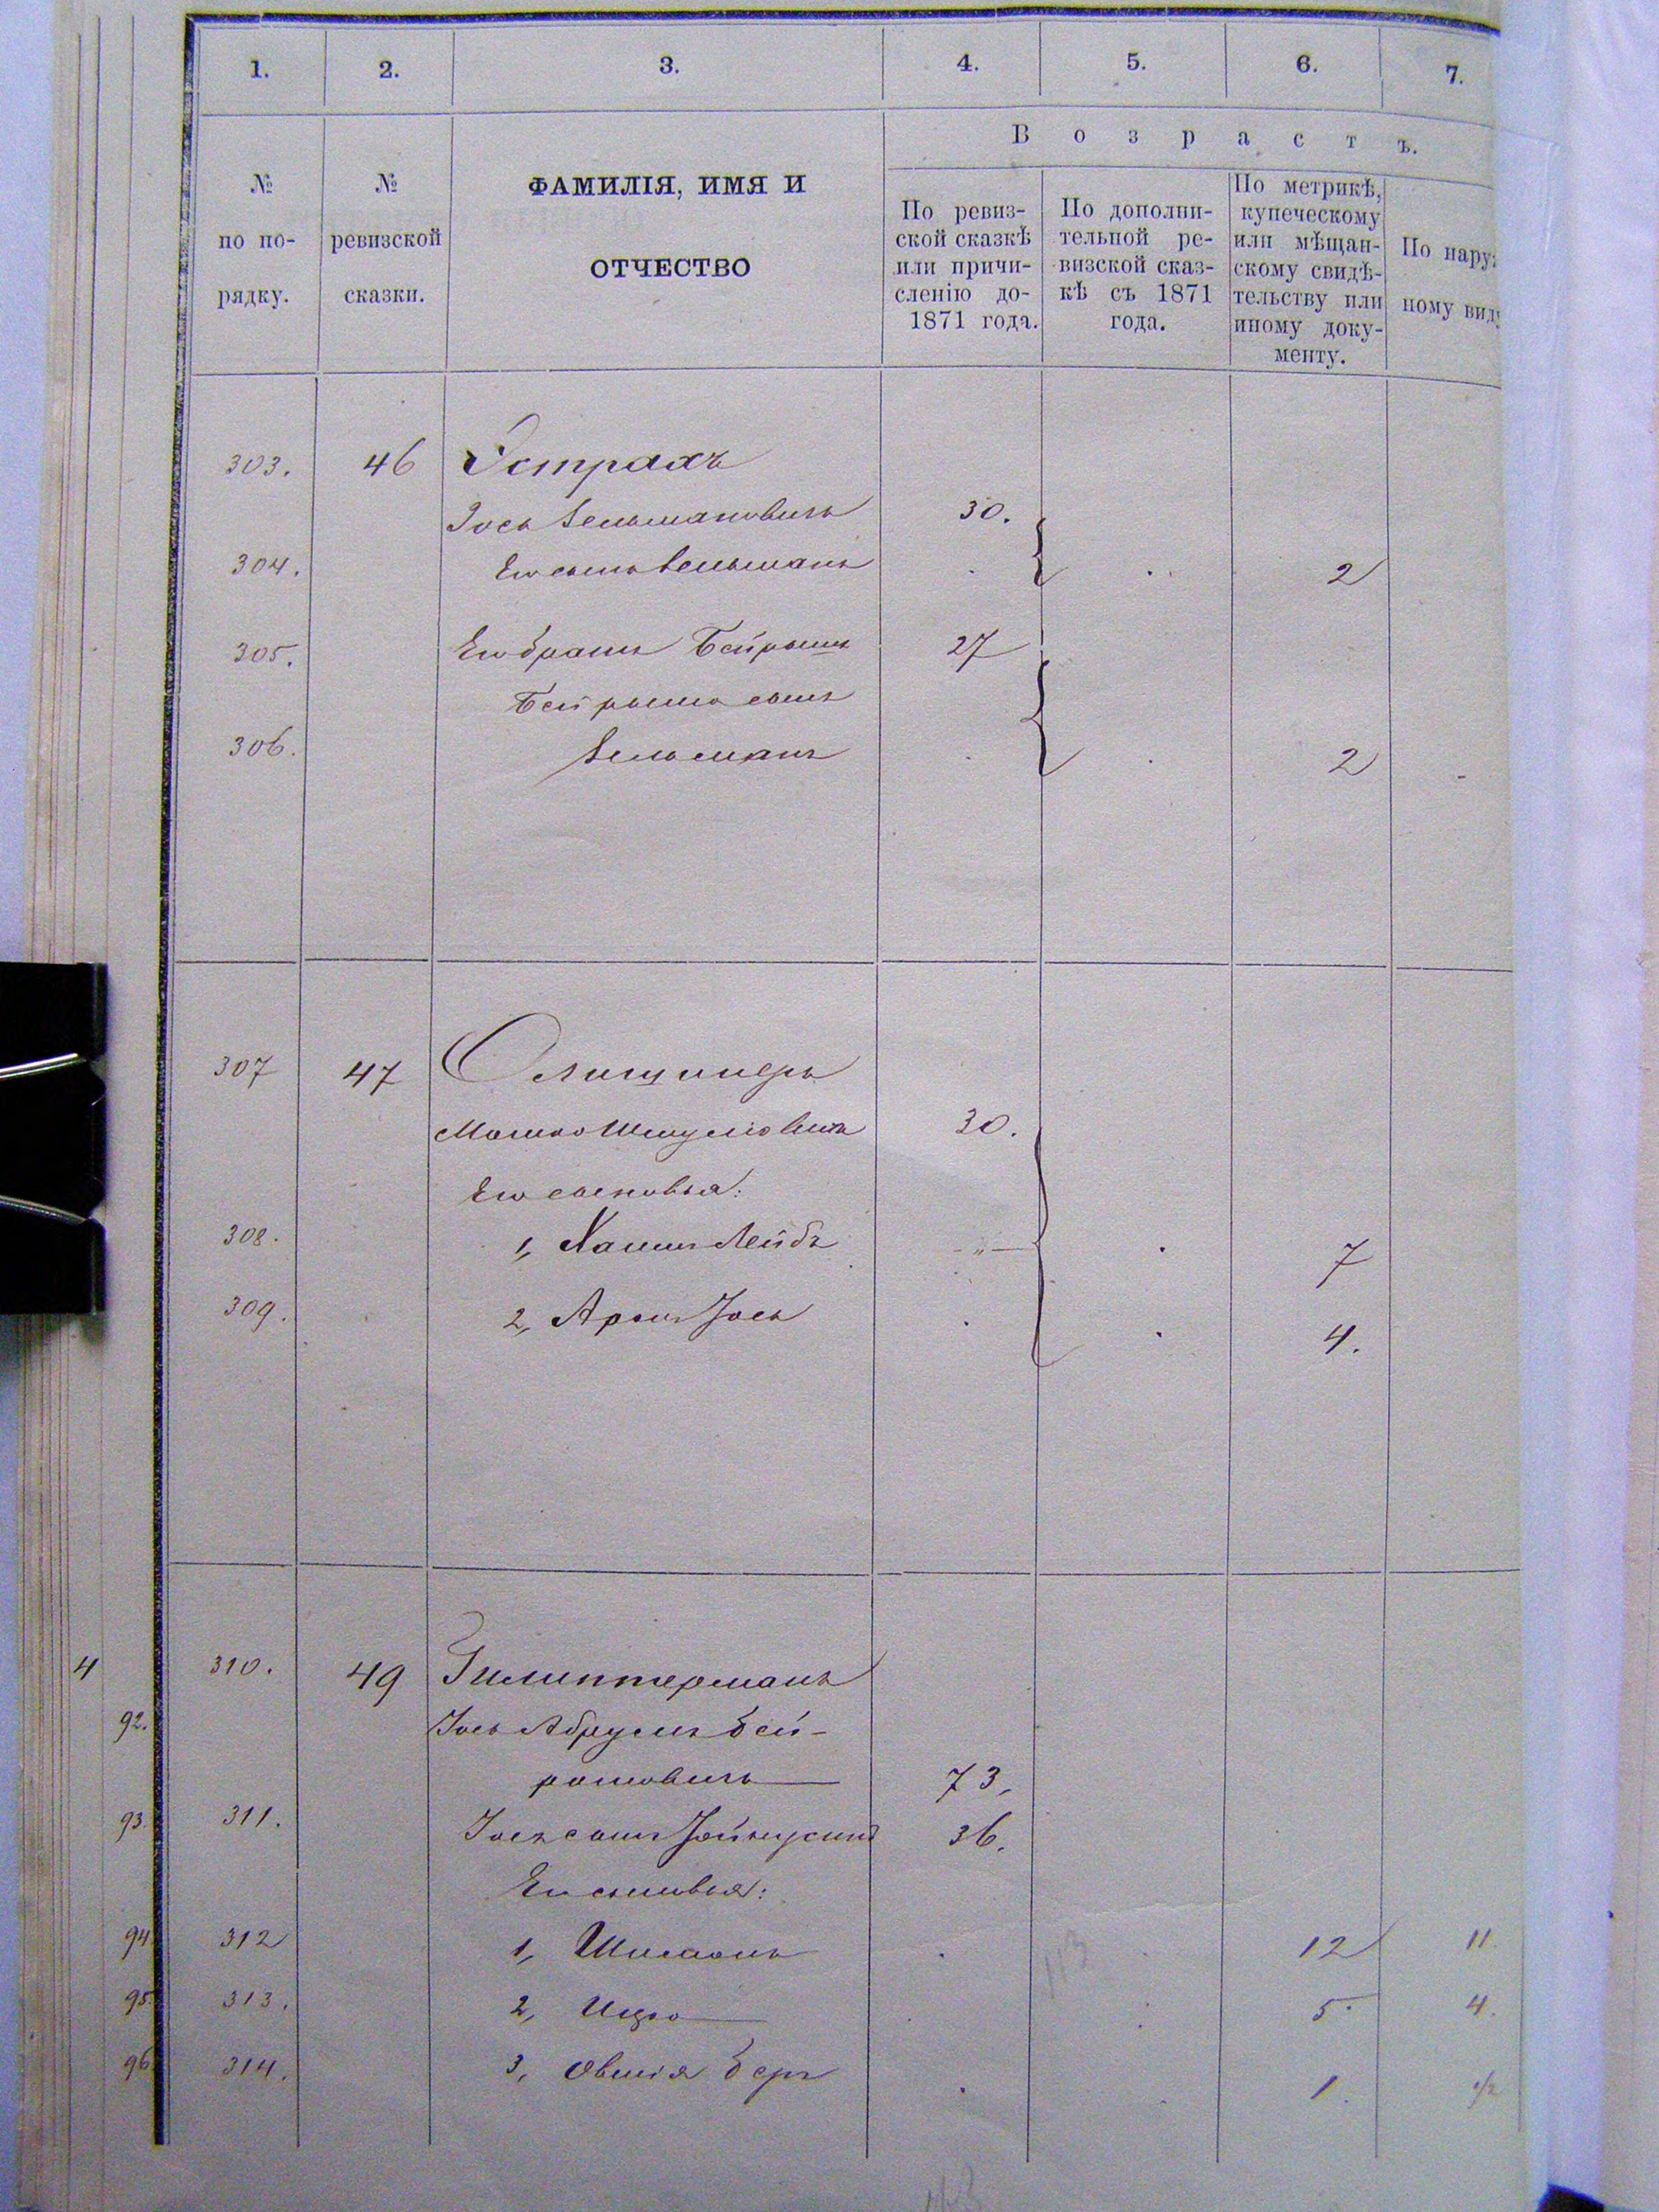 1. 2. 3. 4. 5. 6. 7.
№ по по- рядку.
№ ревизской сказки.
ФАМИЛІЯ, ИМЯ И
ОТЧЕСТВО
Возрастъ.
По ревиз-
ской сказкѣ
или причи-
сленію до
1871 года.
По дополни-
тельной ре-
визской сказ-
кѣ съ 1871
года.
По метрикѣ,
купеческому
или мѣщан-
скому свидѣ-
тельству или
иному доку-
менту.
По нару
ному вид
303. 46 Острахъ
Іось Зельмановичъ 30.
304. Его сынъ Зельманъ 2
305. Его братъ Бейрышъ 27
Бейрыша сынъ
306. Зельманъ 2
307 47 Олищинеръ
Мошко Шмулiовичъ 30.
Его сыновья:
308. 1, Хаимъ Лейбъ „ 7
309. 2, Аронъ Іось 4.
4 310. 49 Гилиптерманъ
92. Іось Абрумъ Бей-
рышовичъ 73.
93. 311. Іося сынъ 36.
Его сыновья:
94 312 1, Шимонъ 12 11
113
95 313. 2, Ицко 5. 4.
96 314. 3, Овшія Беръ 1. 1/2